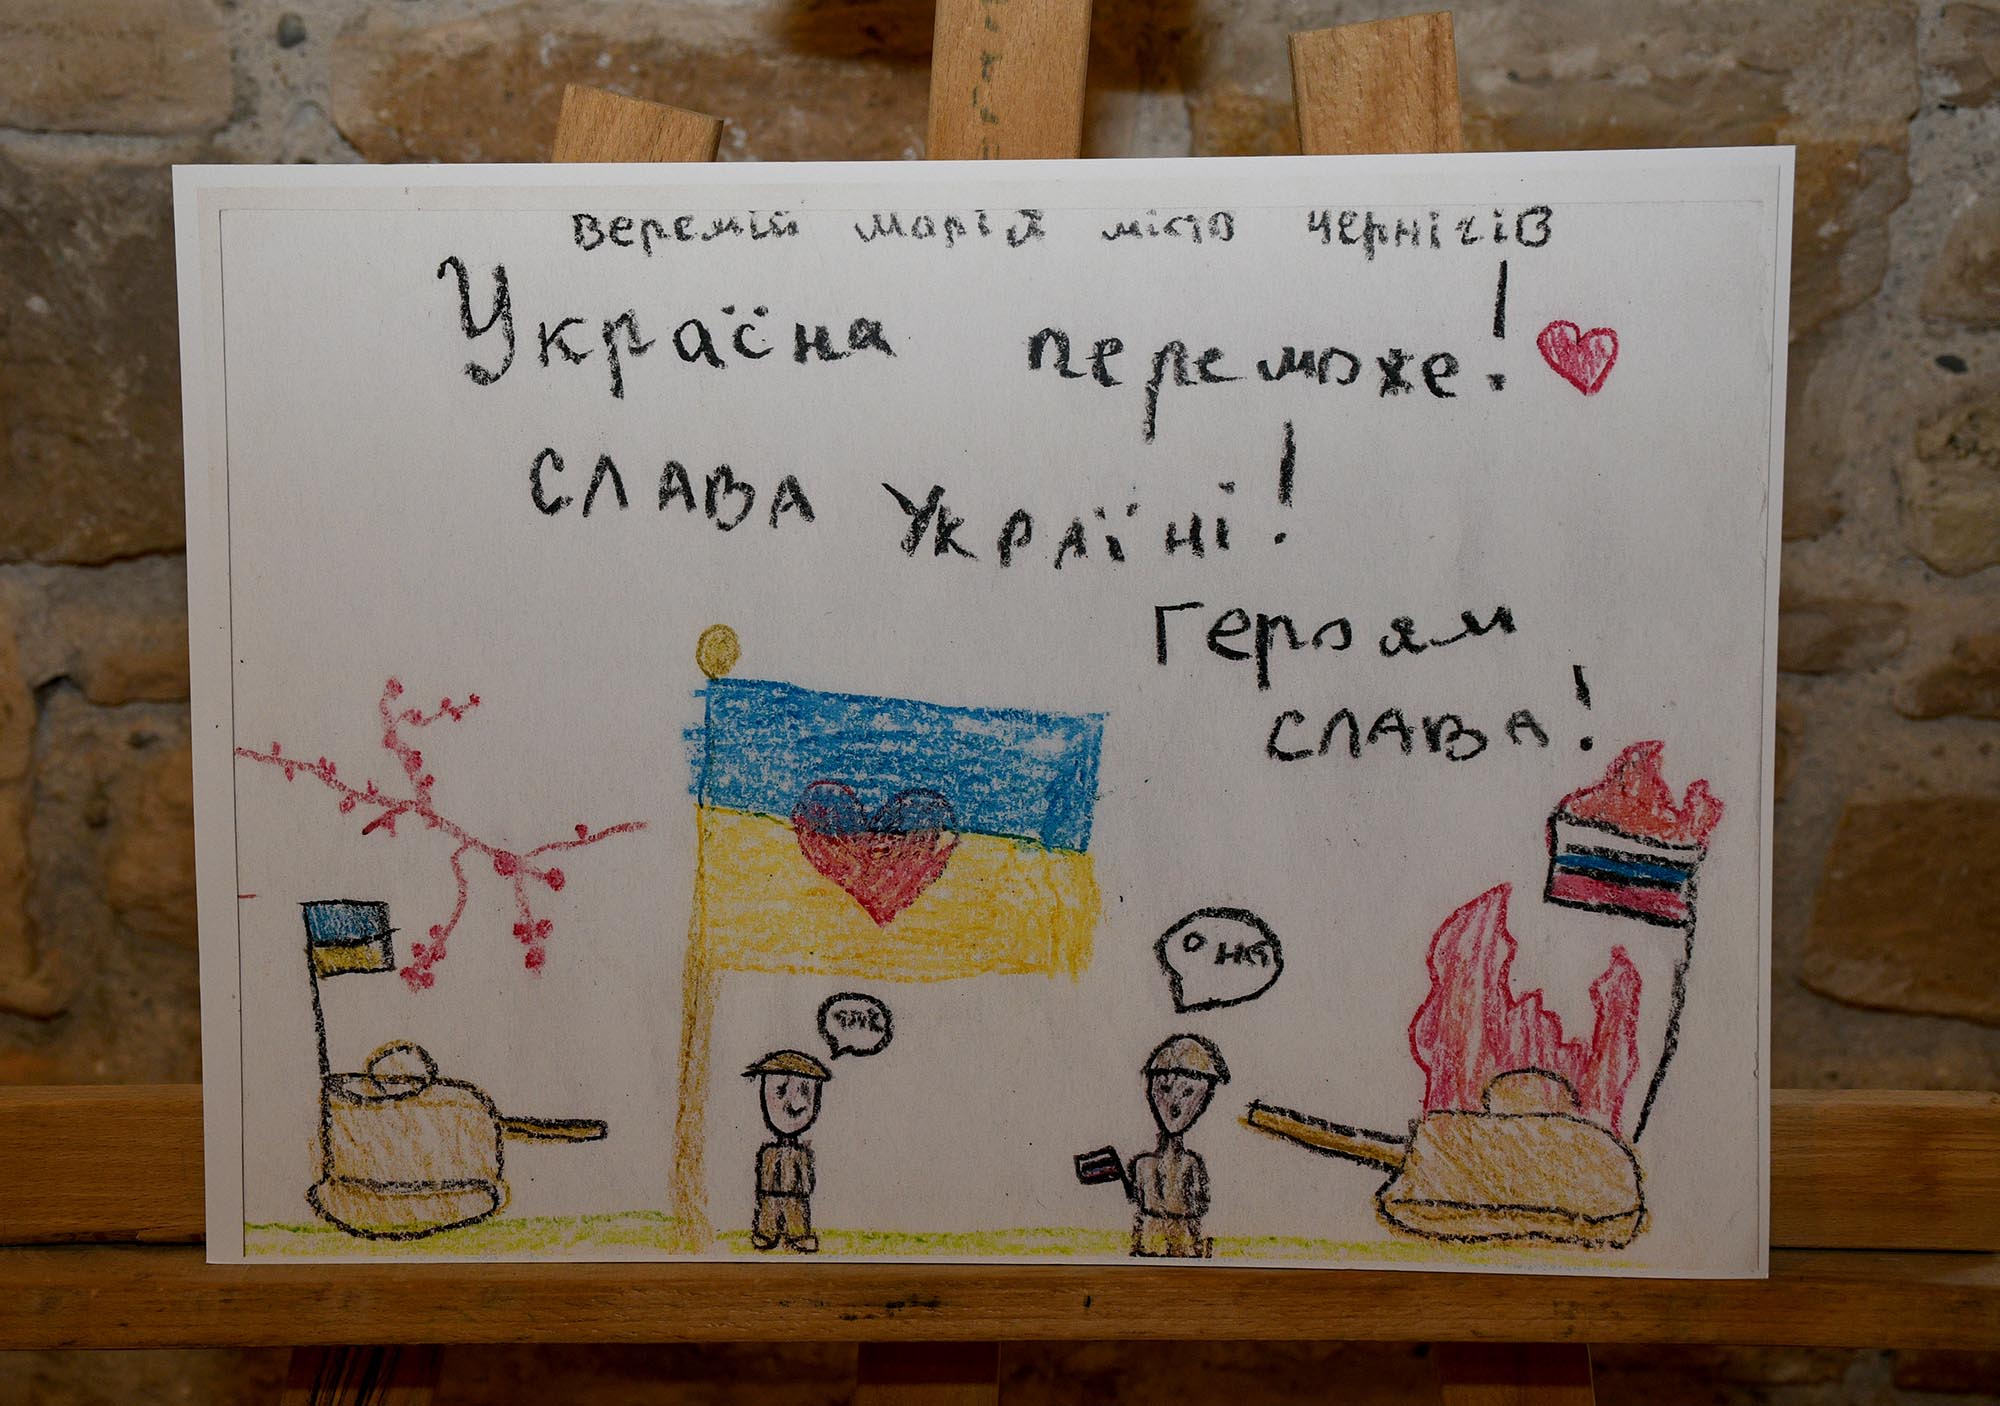 Веремій Марія місто Чернігів
Україна переможе!
СЛАВА УКРАЇНІ!
Героям
СЛАВА!
О НІ